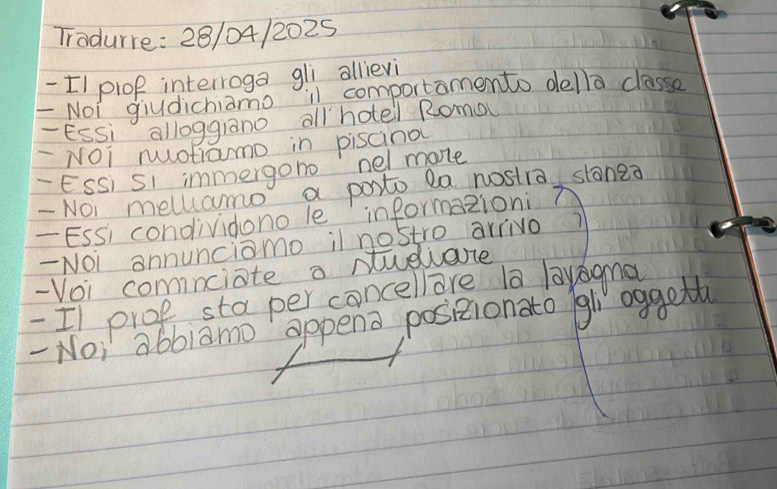 Tradurre: 28/04/2025
- Il prof interroga gli allievi
- Noi giudichiamo il comportamento della classe
- Essi alloggiano all'hotel Roma
- Noi nuotiamo in piscina
- Essi si immergono nel mare
- Noi mettiamo a posto la nostra stanza
- Essi condividono le informazioni
- Noi annunciamo il nostro arrivo
- Voi cominciate a studiare
- Il prof sta per cancellare la lavagna
- Noi abbiamo appena posizionato gli oggetti